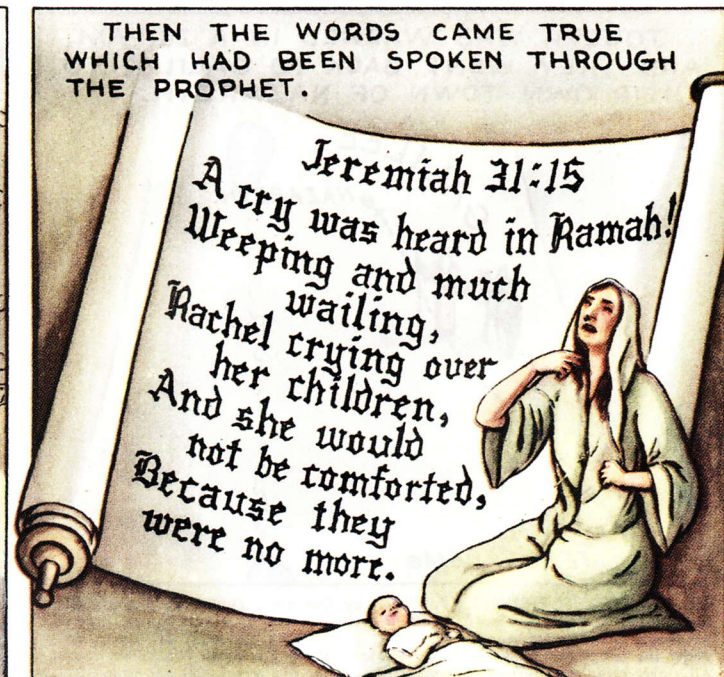 THEN THE WORDS CAME TRUE
WHICH HAD BEEN SPOKEN THROUGH
THE PROPHET.
Jeremiah 31:15
A cry was heard in Ramah!
Weeping and much
wailing,
Rachel crying over
her children,
And she would
not be comforted,
Because they
were no more.